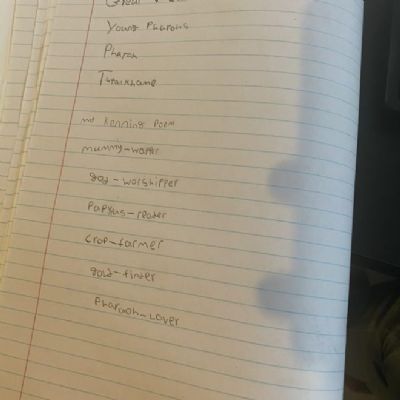 Young Pharohs
Pharoh
md Kenning Poem
mummy-water
god-worshipper
Papyus-reader
Crop-farmer
gold-finder
Pharaoh-Lover